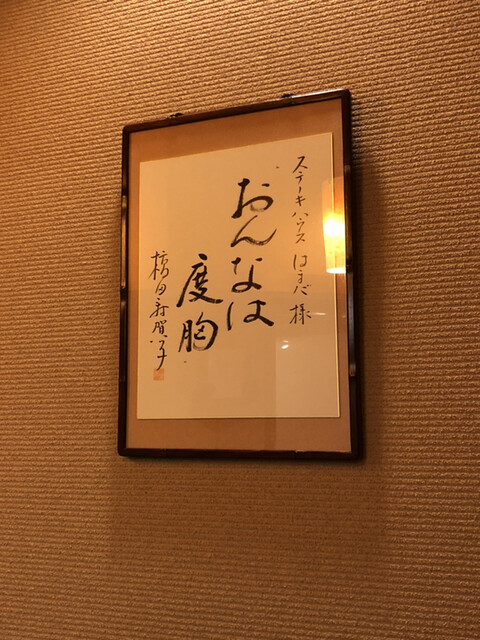 ステーキハウス はまだ 様
"おんなは
度胸"
橋田壽賀子